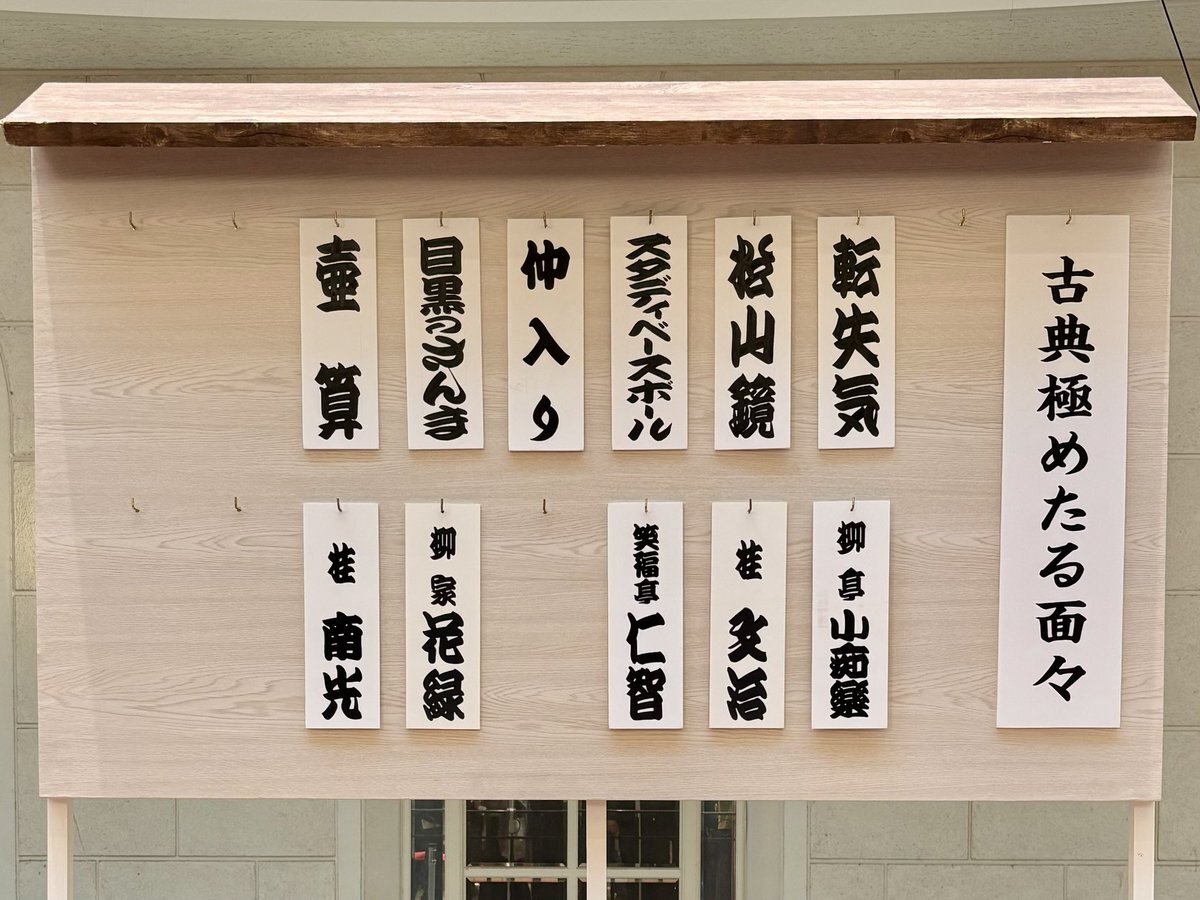 古典極めたる面々
転失気
柳亭小痴楽
松山鏡
桂文治
スタディベースボール
笑福亭仁智
仲入り
目黒のさんま
柳家花緑
壺算
桂南光